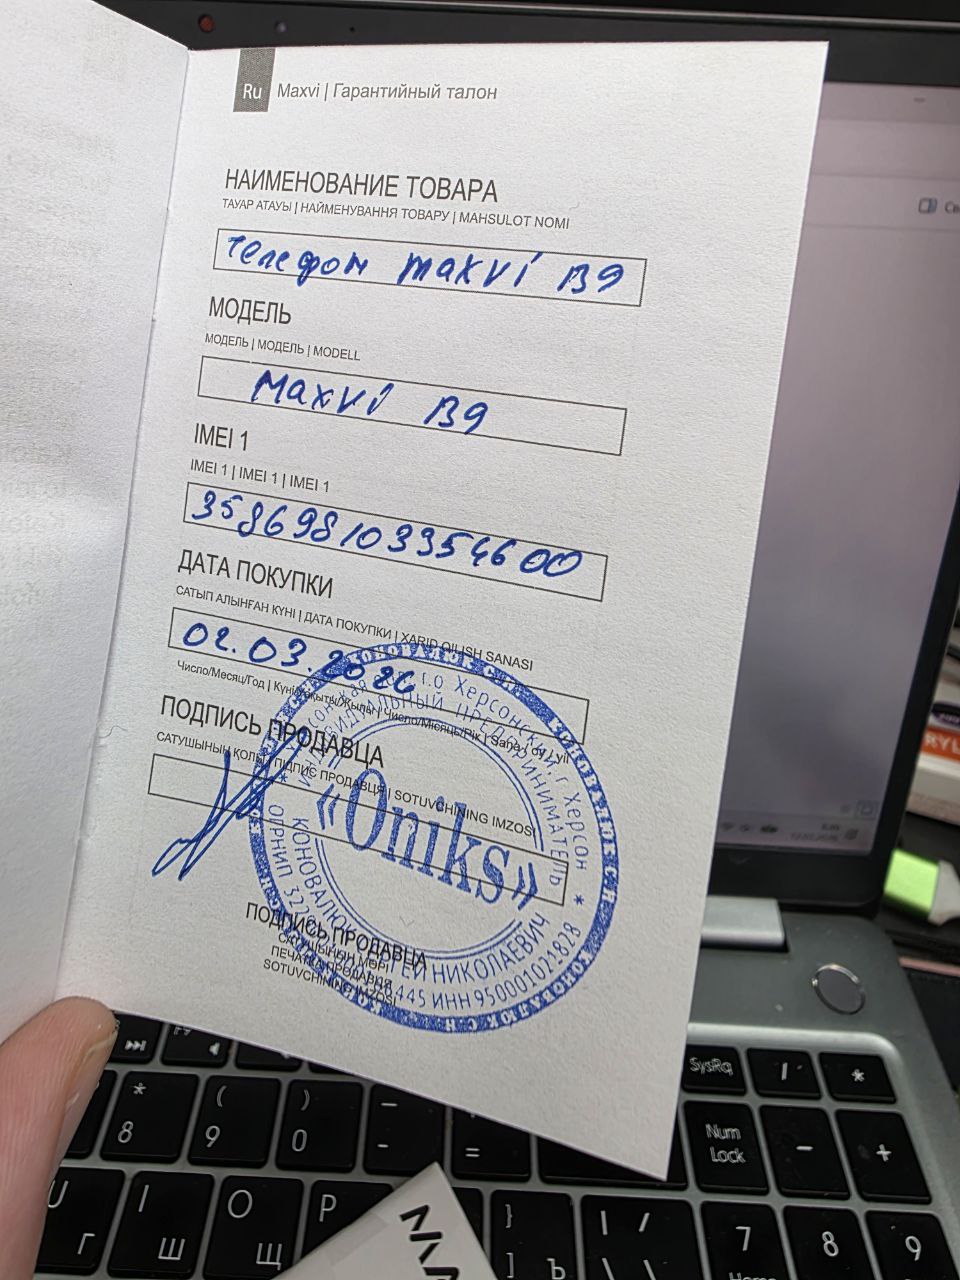 Ru Maxvi | Гарантийный талон
НАИМЕНОВАНИЕ ТОВАРА
ТАУАР АТАУЫ | НАЙМЕНУВАННЯ ТОВАРУ | MAHSULOT NOMI
телефон maxvi B9
МОДЕЛЬ
МОДЕЛЬ | МОДЕЛЬ | MODELL
Maxvi B9
IMEI 1
IMEI 1 | IMEI 1 | IMEI 1
358698103354600
ДАТА ПОКУПКИ
САТЫП АЛЫНҒАН КҮНІ | ДАТА ПОКУПКИ | XARID QILISH SANASI
02.03.2026
Число/Месяц/Год | Күні/Жылы | Число/Місяць/Рік | Sana/Yil
ПОДПИСЬ ПРОДАВЦА
САТУШЫНЫҢ ҚОЛЫ | ПІДПИС ПРОДАВЦЯ | SOTUVCHINING IMZOSI
КОНОВАЛЮК С.Н.
г.о Херсонский, г. Херсон
ИНДИВИДУАЛЬНЫЙ ПРЕДПРИНИМАТЕЛЬ
«Oniks»
НИКОЛАЕВИЧ
ОГРНИП
445 ИНН 950001021828
ПОДПИСЬ ПРОДАВЦА
САТУШЫНЫҢ МӨРІ
ПЕЧАТКА ПРОДАВЦЯ
SOTUVCHINING IMZOSI
SysRq / *
* ( ) _
8 9 0 - =
Num Lock - +
U I O P } | /
Г Ш Щ ] Ъ \ 7 8 9
Home